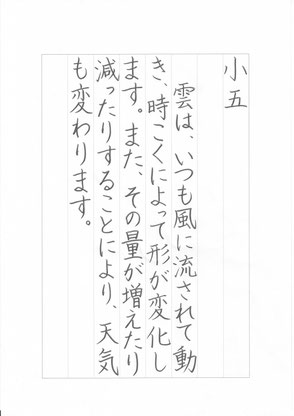 小五
雲は、いつも風に流されて動
き、時こくによって形が変化し
ます。また、その量が増えたり
減ったりすることにより、天気
も変わります。